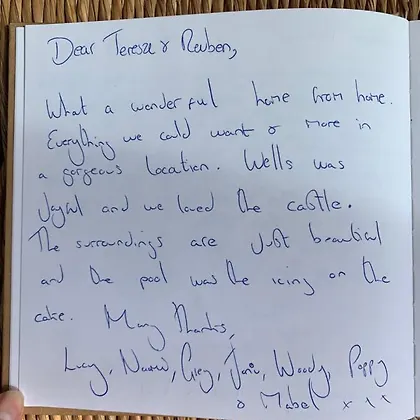 Dear Teresa & Reuben,
What a wonderful home from home.
Everything we could want & more in
a gorgeous location. Wells was
joyful and we loved the castle.
The surroundings are just beautiful
and the pool was the icing on the
cake. Many Thanks,
Lucy, Greg, Woody, Poppy
& Mabel x x x